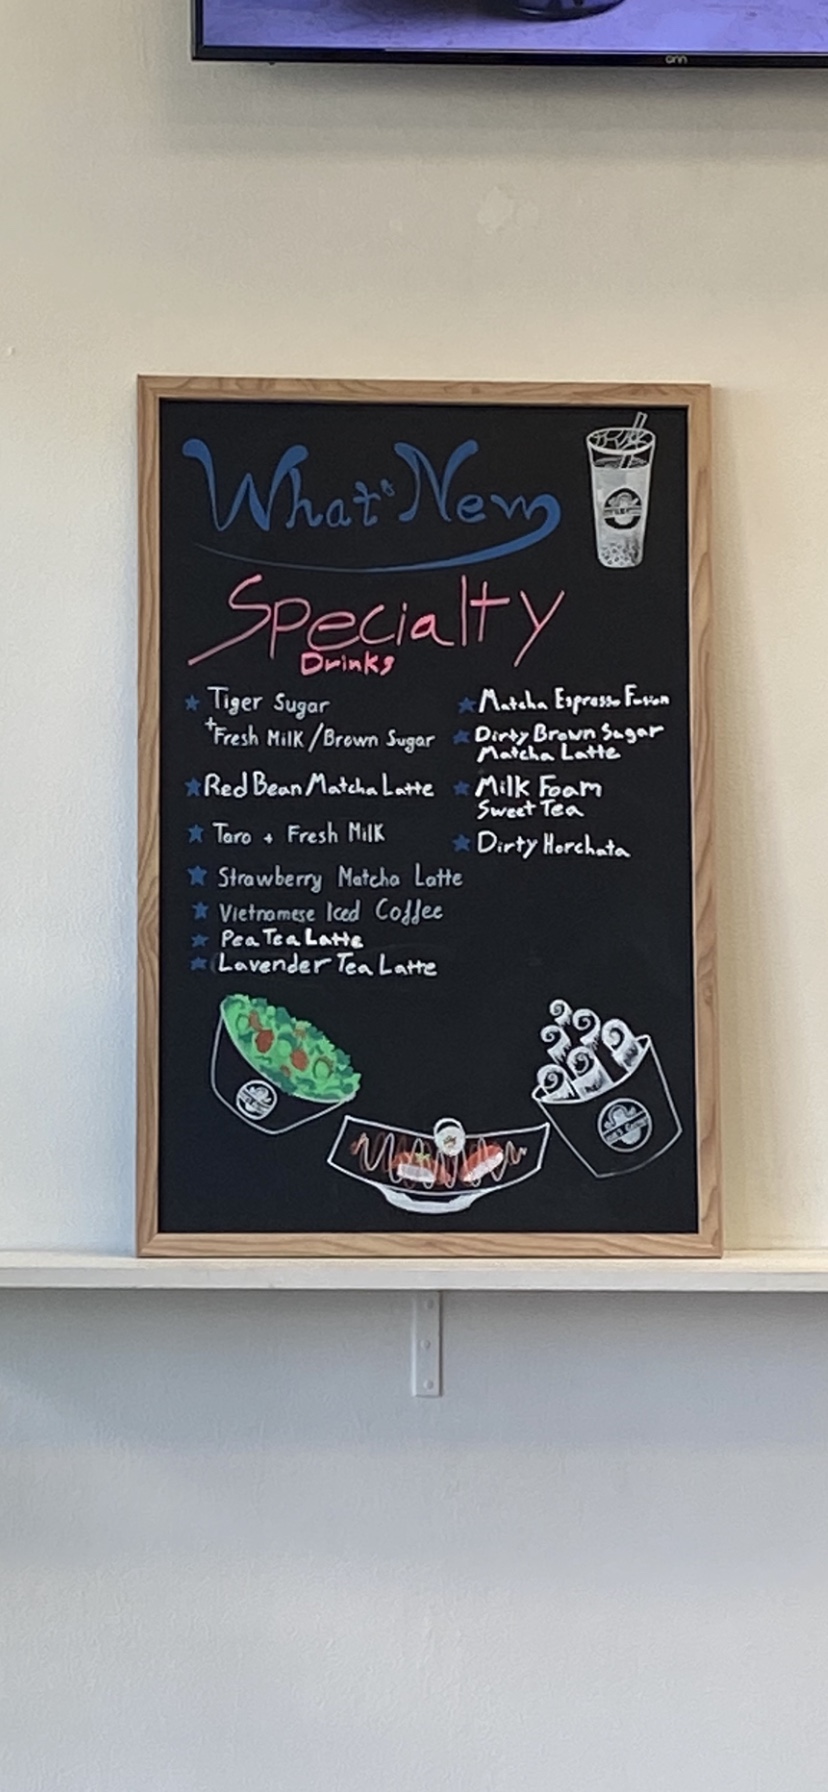 onn
What's New
Specialty
Drinks
Tiger Sugar
+Fresh Milk/Brown Sugar
Red Bean Matcha Latte
Taro + Fresh Milk
Strawberry Matcha Latte
Vietnamese Iced Coffee
Pea Tea Latte
Lavender Tea Latte
Matcha Espresso Fusion
Dirty Brown Sugar
Matcha Latte
Milk Foam
Sweet Tea
Dirty Horchata